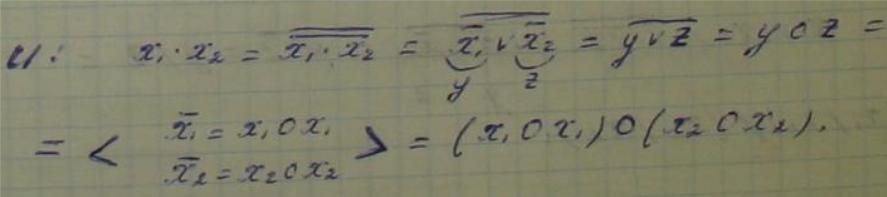 И: x₁·x₂ = \overline{\overline{x₁·x₂}} = \overline{x̄₁ ∨ x̄₂} = \overline{y∨z} = y○z =
y z
= < x̄₁ = x₁○x₁
x̄₂ = x₂○x₂ > = (x₁○x₁)○(x₂○x₂).